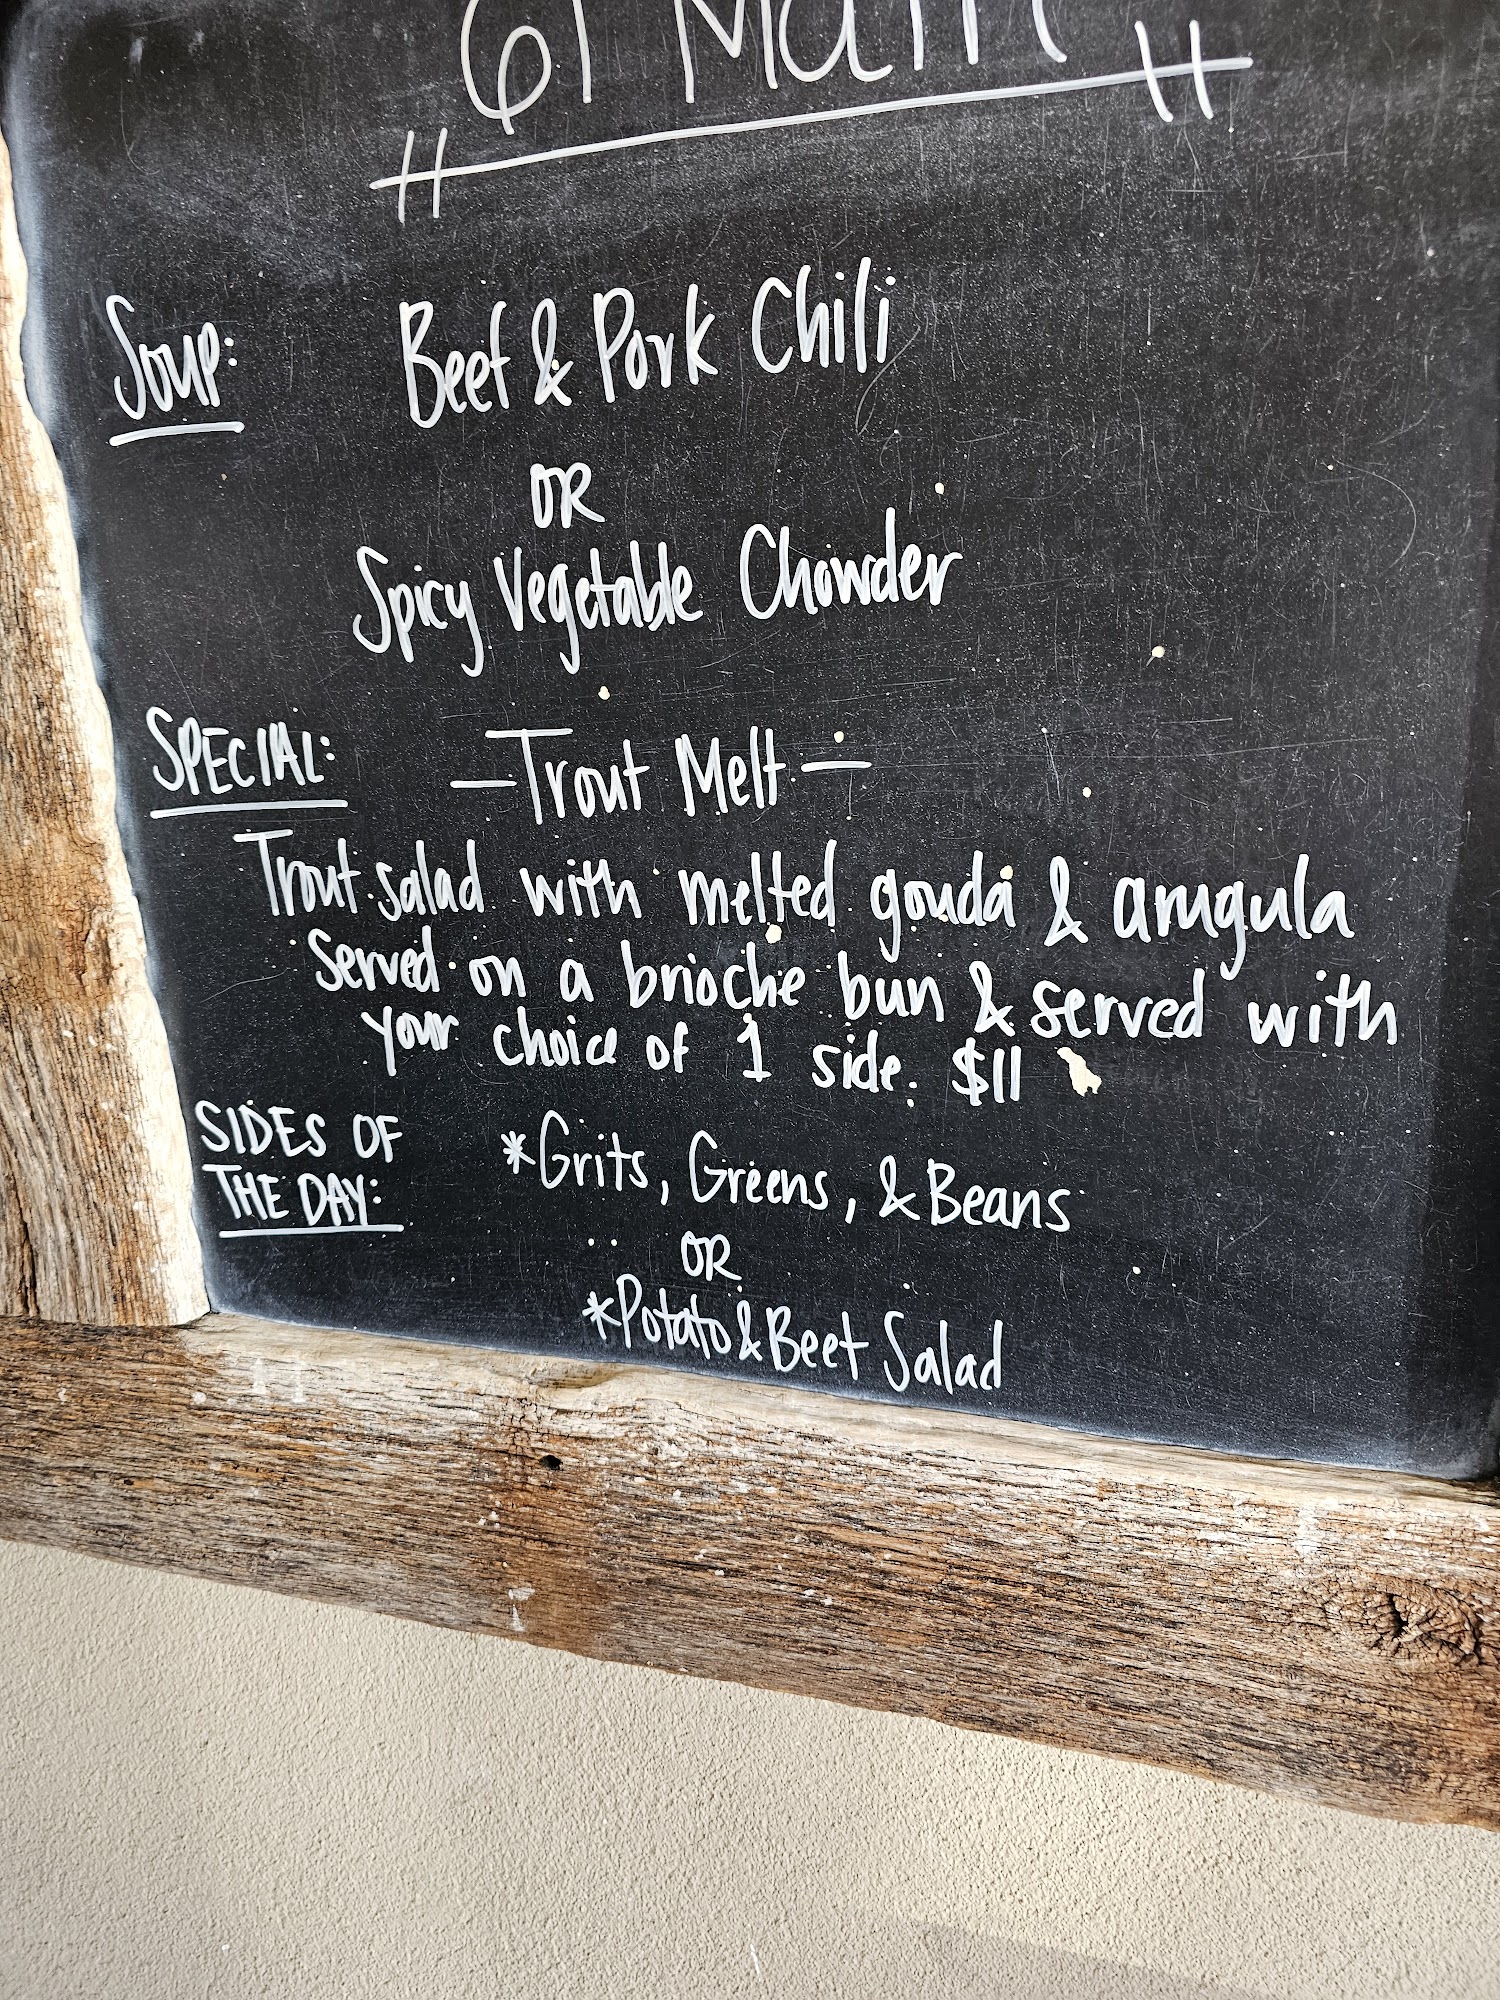 61 Main
Soup: Beef & Pork Chili
OR
Spicy Vegetable Chowder
SPECIAL: —Trout Melt—
Trout salad with melted gouda & arugula
served on a brioche bun & served with
your choice of 1 side. $11
SIDES OF
THE DAY:
*Grits, Greens, & Beans
OR
*Potato & Beet Salad